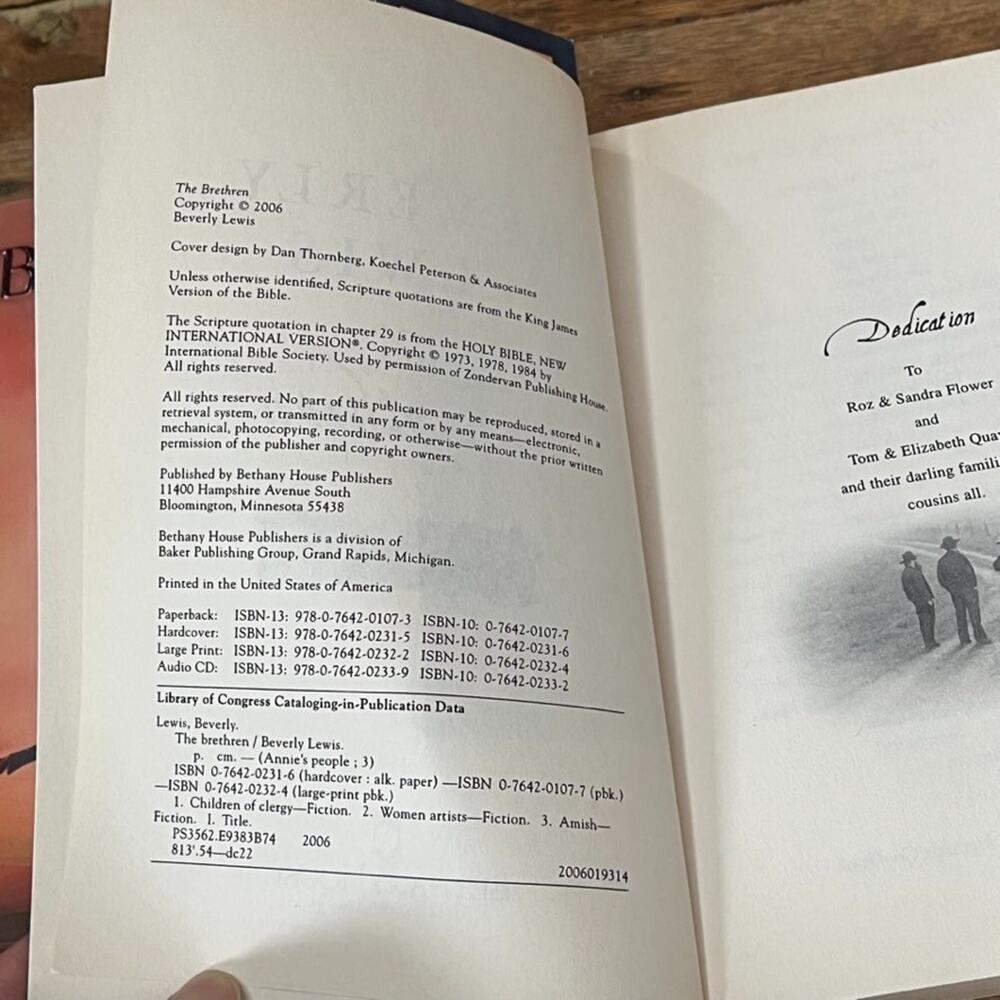 The Brethren
Copyright © 2006
Beverly Lewis
Cover design by Dan Thornberg, Koechel Peterson & Associates
Unless otherwise identified, Scripture quotations are from the King James
Version of the Bible.
The Scripture quotation in chapter 29 is from the HOLY BIBLE, NEW
INTERNATIONAL VERSION®. Copyright © 1973, 1978, 1984 by
International Bible Society. Used by permission of Zondervan Publishing House.
All rights reserved.
All rights reserved. No part of this publication may be reproduced, stored in a
retrieval system, or transmitted in any form or by any means—electronic,
mechanical, photocopying, recording, or otherwise—without the prior written
permission of the publisher and copyright owners.
Published by Bethany House Publishers
11400 Hampshire Avenue South
Bloomington, Minnesota 55438
Bethany House Publishers is a division of
Baker Publishing Group, Grand Rapids, Michigan.
Printed in the United States of America
Paperback: ISBN-13: 978-0-7642-0107-3 ISBN-10: 0-7642-0107-7
Hardcover: ISBN-13: 978-0-7642-0231-5 ISBN-10: 0-7642-0231-6
Large Print: ISBN-13: 978-0-7642-0232-2 ISBN-10: 0-7642-0232-4
Audio CD: ISBN-13: 978-0-7642-0233-9 ISBN-10: 0-7642-0233-2
Library of Congress Cataloging-in-Publication Data
Lewis, Beverly.
The brethren / Beverly Lewis.
p. cm. — (Annie's people ; 3)
ISBN 0-7642-0231-6 (hardcover : alk. paper) —ISBN 0-7642-0107-7 (pbk.)
—ISBN 0-7642-0232-4 (large-print pbk.)
1. Children of clergy—Fiction. 2. Women artists—Fiction. 3. Amish—
Fiction. I. Title.
PS3562.E9383B74 2006
813'.54—dc22
2006019314
Dedication
To
Roz & Sandra Flower
and
Tom & Elizabeth
and their darling
cousins all.
B